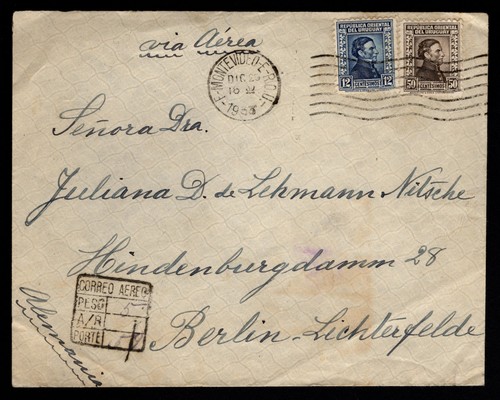 via Aérea
REPUBLICA ORIENTAL
DEL URUGUAY
12 12
CENTESIMOS
REPUBLICA ORIENTAL
DEL URUGUAY
50 50
CENTESIMOS
MONTEVIDEO-E-R.O.U.-
DIC 23
16
193
Señora Dra.
Juliana D. de Lehmann Nitsche
Hindenburgdamm 28
Berlin-Lichterfelde
Alemania
CORREO AEREO
PESO 5
A/R
PORTE